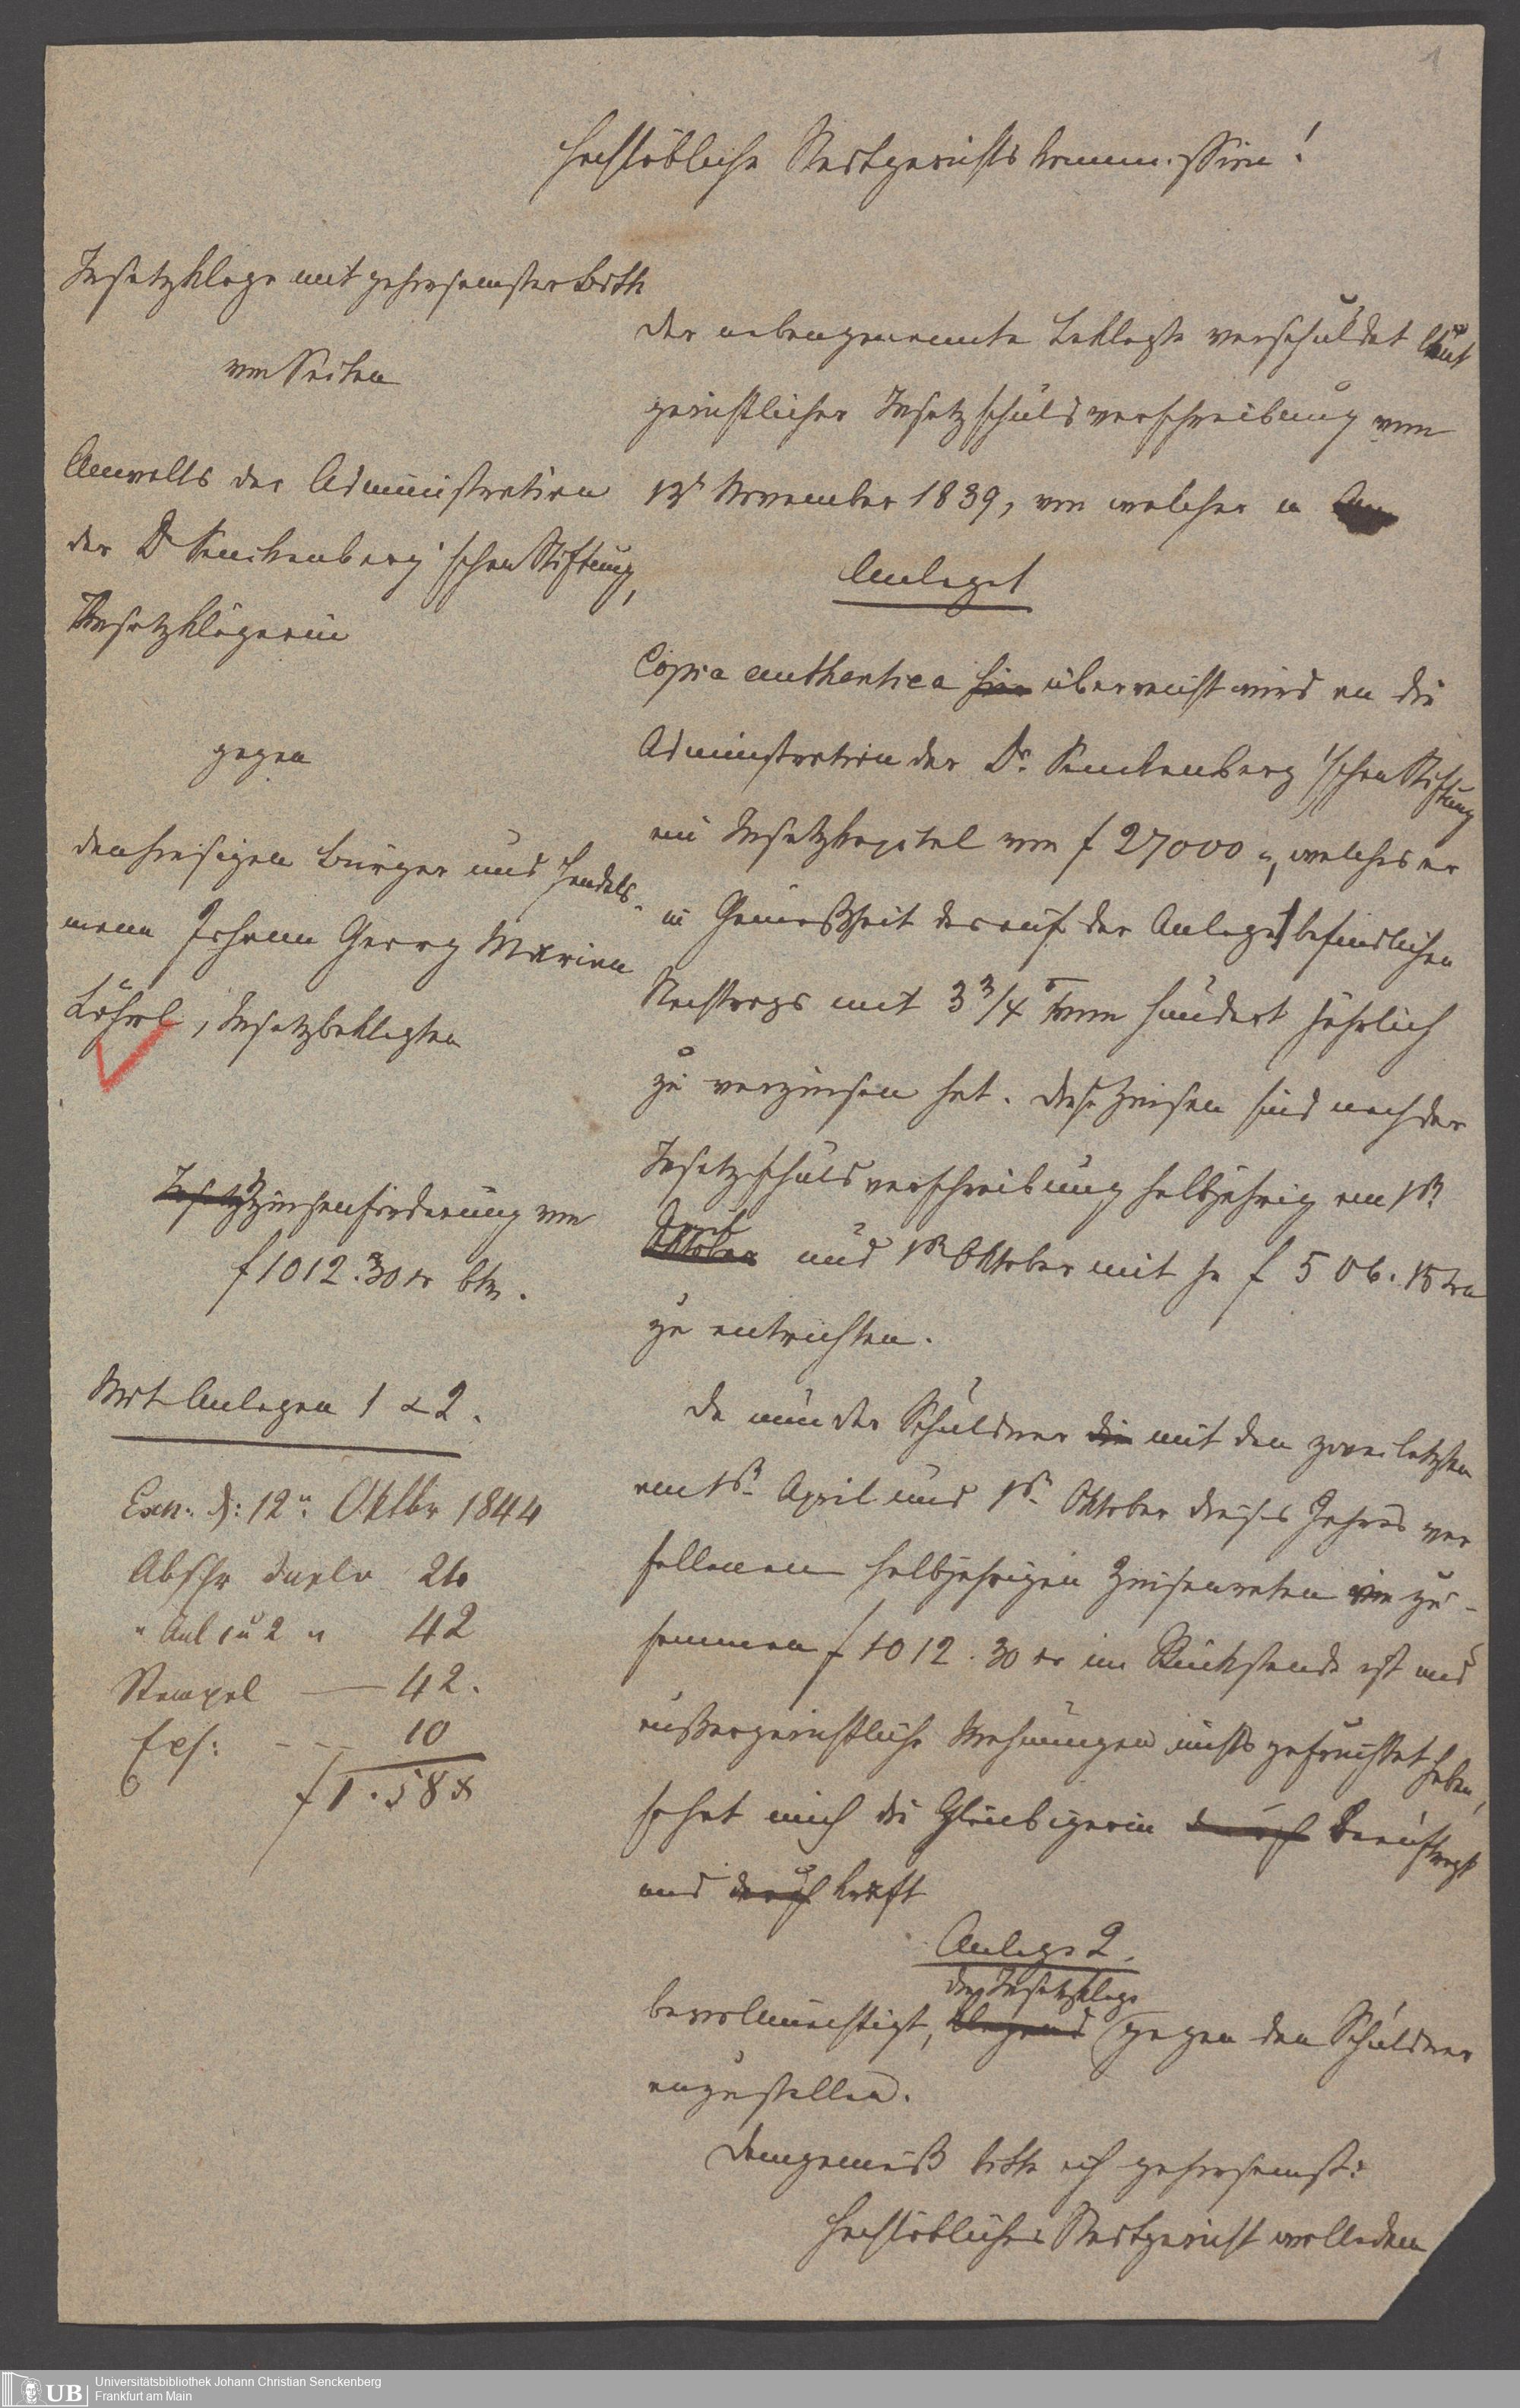 1
Hochlöbliche Stadtgerichtskommission!
Insatzklage mit gehorsamster Bitte
von Seiten
Anwalts der Administration
der Dr Senckenberg'schen Stiftung,
Insatzklägerin
gegen
den hiesigen Bürger und Handels-
mann Johann Georg Marian
Löhrl, Insatzbeklagten
Insatz Zinsenforderung von
f 1012. 30 xr btr.
Mit Anlagen 1 & 2.
Exn. d: 12n Oktbr 1844
Abschr dupln 26
" Anl 1 u 2 " 42
Stempel — 42.
Exp: - - - 10
f 1. 58 x
Der nebengenannte Beklagte verschuldet laut
gerichtlicher Insatzschuldverschreibung vom
13t November 1839, von welcher in
Anlage 1
Copia authentica hier überreicht wird an die
Adminstration der Dr. Senckenberg'schen Stiftung
ein Insatzkapital von f 27000 „, welches er
in Gemäßheit des auf der Anlage 1 befindlichen
Nachtrags mit 3 3/4 vom hundert jährlich
zu verzinsen hat. Diese Zinsen sind nach der
Insatzschuldverschreibung halbjährig am 1st
April
Oktober und 1st Oktober mit je f 506. 15 xrn
zu entrichten.
Da nun der Schuldner die mit den zwei letzten
am 1st April und 1st Oktober dieses Jahres ver
fallenen halbjährigen Zinsenraten von zu-
sammen f 1012. 30 xr im Rückstande ist und
außergerichtliche Mahnungen nichts gefruchtet haben,
so hat mich die Gläubigerin durch beauftragt
und durch kraft
Anlage 2.
die Insatzklage
bevollmächtigt, klagend gegen den Schuldner
anzustellen.
Demgemäß bitte ich gehorsamst:
Hochlöbliches Stadtgericht wolle den
UB
Universitätsbibliothek Johann Christian Senckenberg
Frankfurt am Main